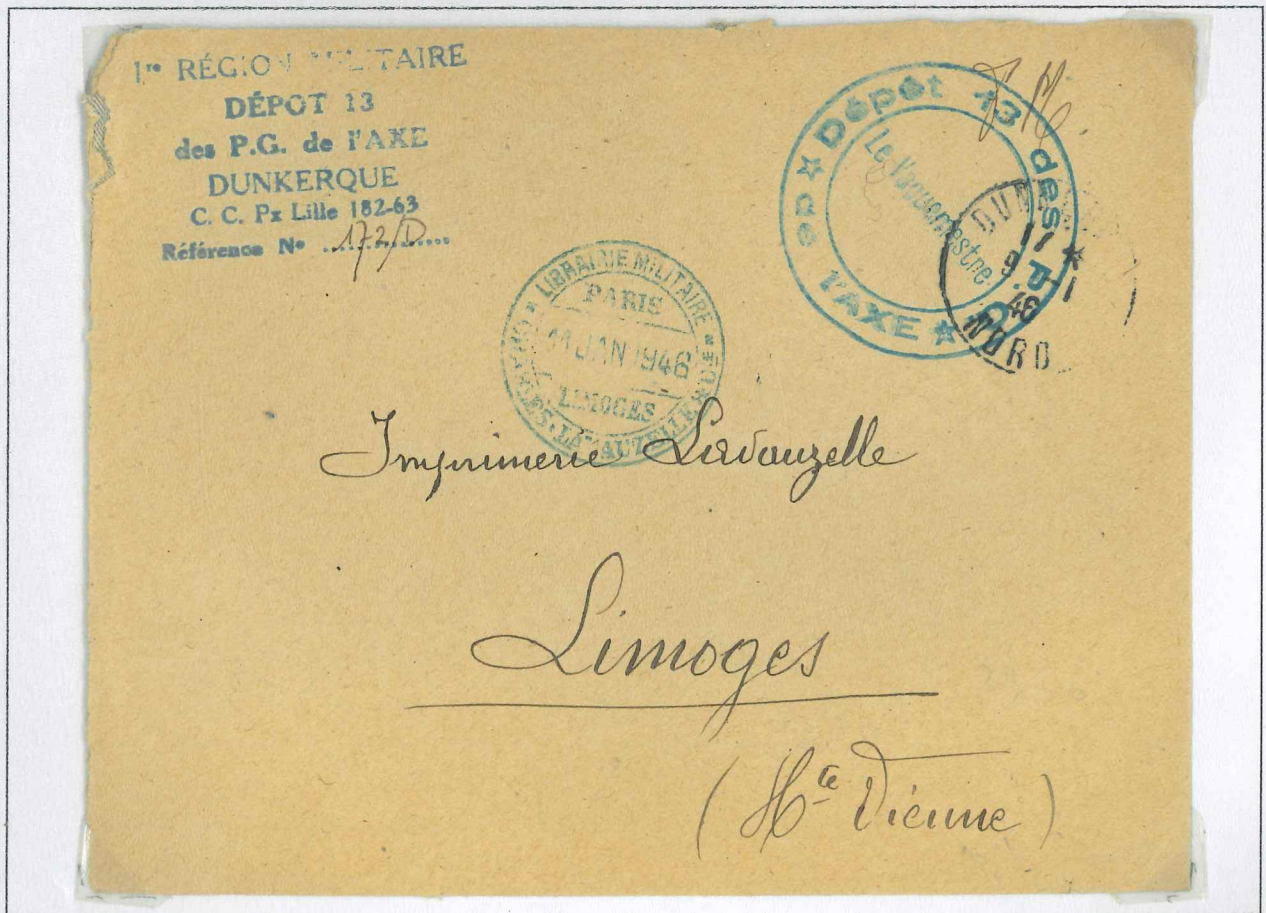 1re RÉGION MILITAIRE
DÉPOT 13
des P.G. de l'AXE
DUNKERQUE
C. C. Px Lille 182-63
Référence No 172/D
F. M.
Dépôt 13 des P.G. de l'AXE
Le Vaguemestre
17 * 
9 - 1
46
NORD
LIBRAIRIE MILITAIRE
PARIS
11 JAN 1946
LIMOGES
CHARLES-LAVAUZELLE & CIE
Imprimerie Lavauzelle
Limoges
(Hte Vienne)